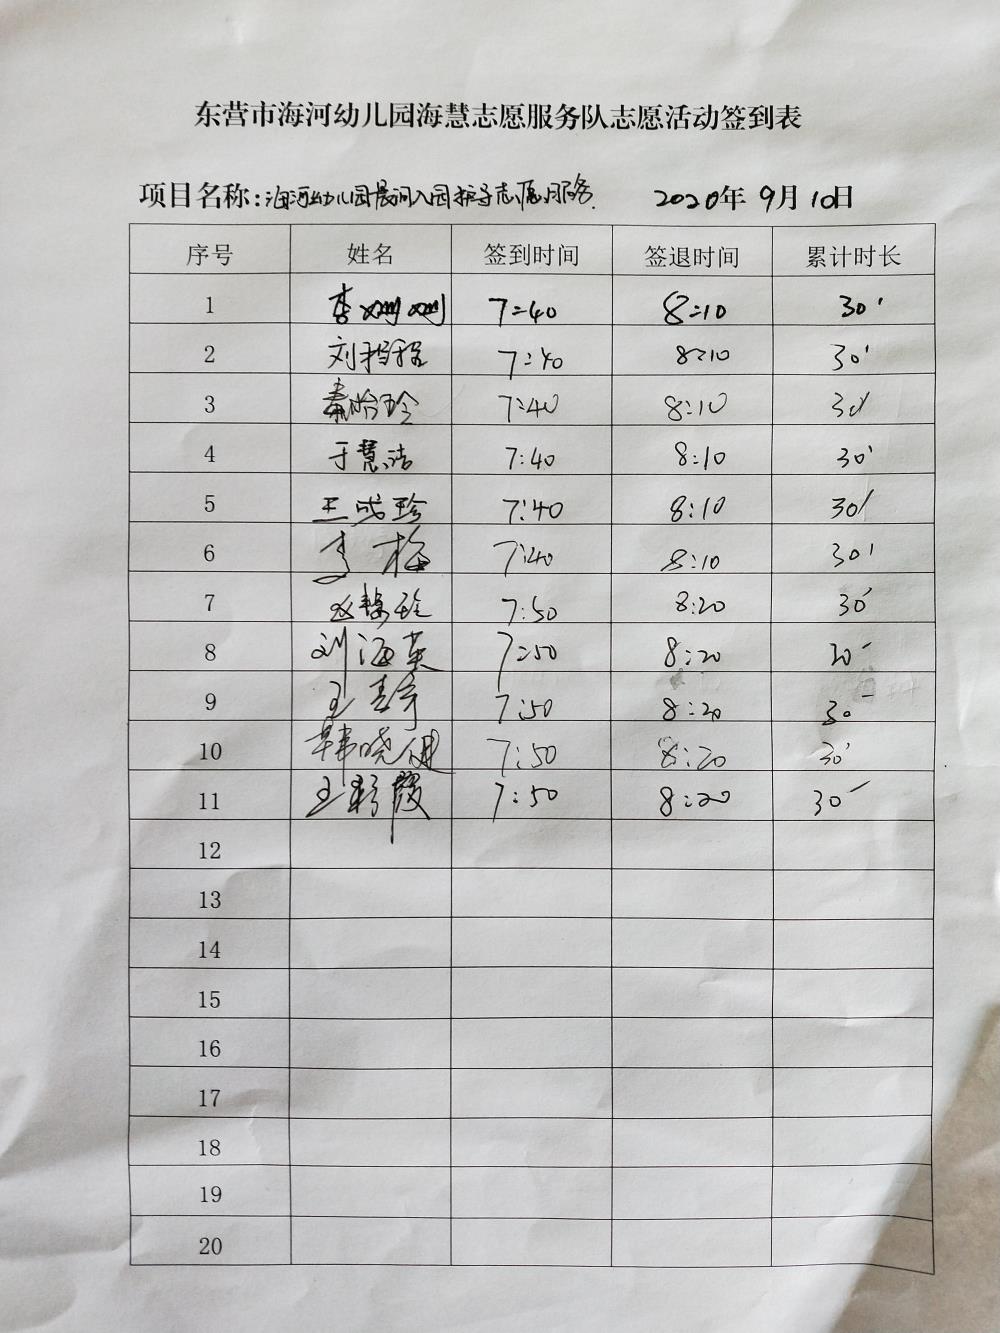 东营市海河幼儿园海慧志愿服务队志愿活动签到表
项目名称:海河幼儿园晨间入园护导志愿服务. 2020年 9月 10日
序号 姓名 签到时间 签退时间 累计时长
1 李姗姗 7:40 8:10 30'
2 刘 程 7:40 8:10 30'
3 秦 玲 7:40 8:10 30'
4 于慧洁 7:40 8:10 30'
5 王成珍 7:40 8:10 30'
6 李梅 7:40 8:10 30'
7 7:50 8:20 30'
8 刘海英 7:50 8:20 30'
9 王 7:50 8:20 30'
10 韩晓健 7:50 8:20 30'
11 王彩霞 7:50 8:20 30'
12
13
14
15
16
17
18
19
20